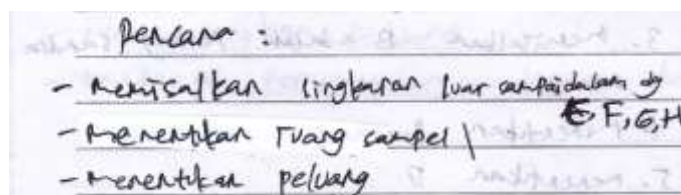 Rencana :
- Memisalkan lingkaran luar sampai dalam dg
E F, G, H
- Menentukan ruang sampel
- Menentukan peluang